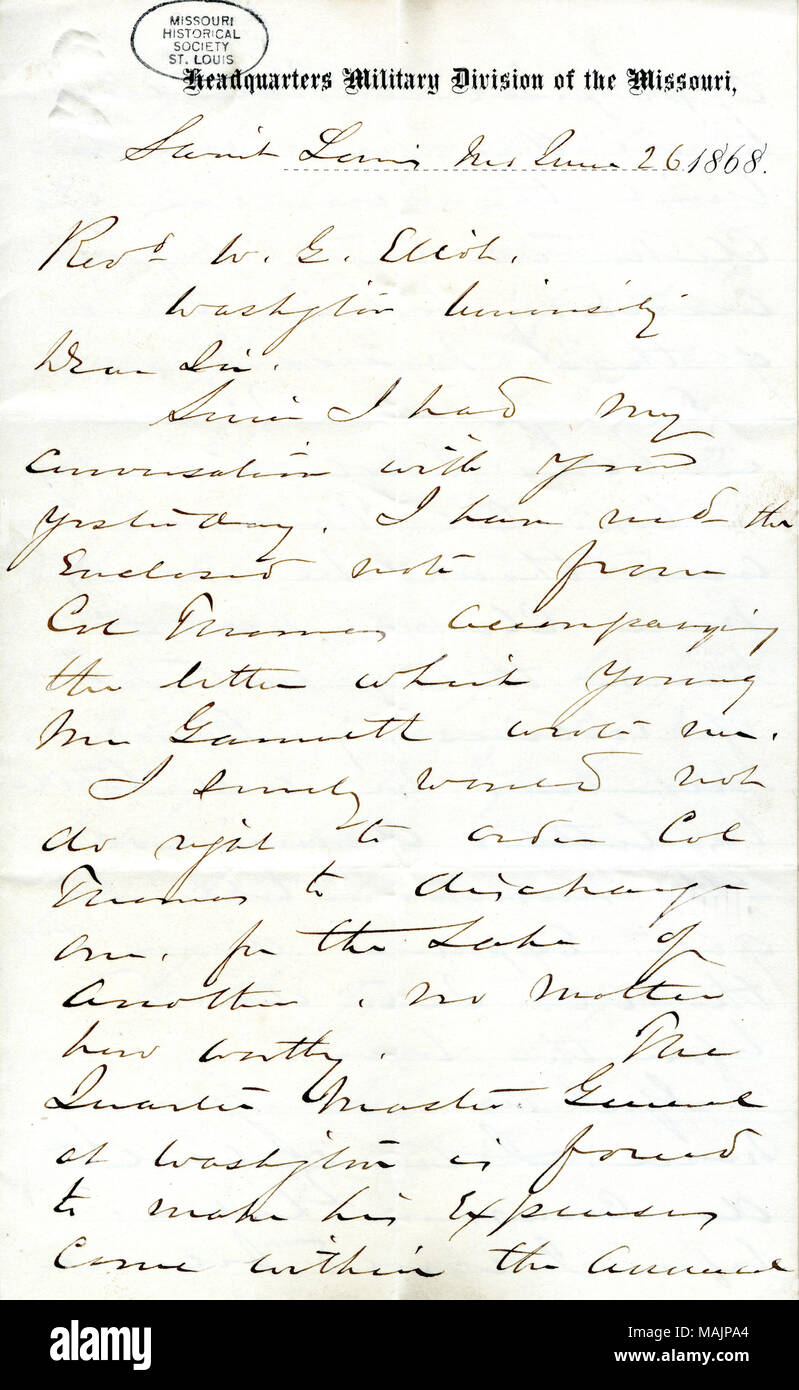 MISSOURI
HISTORICAL
SOCIETY
ST. LOUIS
Headquarters Military Division of the Missouri,
Saint Louis Mo June 26 1868.
Revd W. G. Eliot.
Washington University
Dear Sir.
Since I had my
conversation with you
yesterday. I have recd the
Enclosed note from
Col Thomas accompanying
the letter which young
Mr Gannett wrote me.
I surely would not
do right to order Col
Thomas to discharge
one, for the sake of
another, no matter
how worthy. The
Quarter Master General
at Washington is forced
to make his Expenses
come within the annual
alamy
Image ID: MAJPA4
www.alamy.com